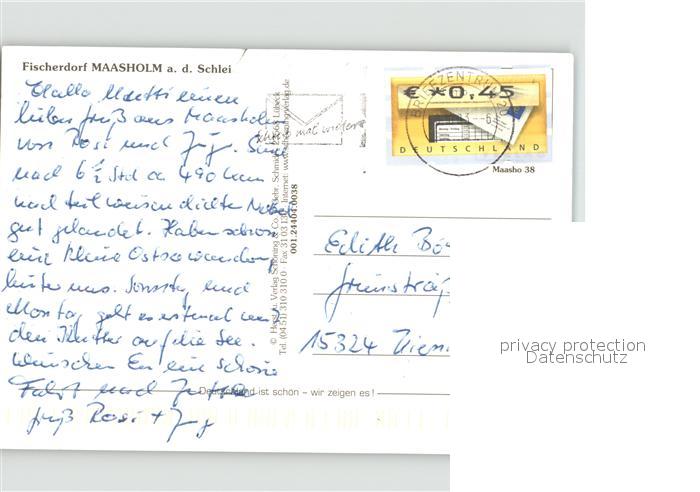 Fischerdorf MAASHOLM a. d. Schlei
Hallo Mutti einen
lieben Gruß aus Maasholm
von Rosi und Jürg. Sind
nach 6½ Std ca 490 km
und teilweisen dichten Nebel
gut gelandet. Haben schon
eine kleine Ostseewanderung
hinter uns. Sonntag und
Montag geht es erstmal mit
den Kutter auf die See.
Wünschen Euch eine schöne
Fahrt nach
Gruß Rosi + Jürg
© Horst u. Verlag Schöning & Co. + Gebr. Schmidt, 23563 Lübeck
Tel. (04 51) 310 310 0 · Fax 31 03 13 · Internet: www.schoening-verlag.de
001.24404.0038
Deutschland ist schön – wir zeigen es!
mal wieder
BRIEFZENTRUM 20
€ *0,45
DEUTSCHLAND
Maasho 38
Edith
15324
privacy protection
Datenschutz